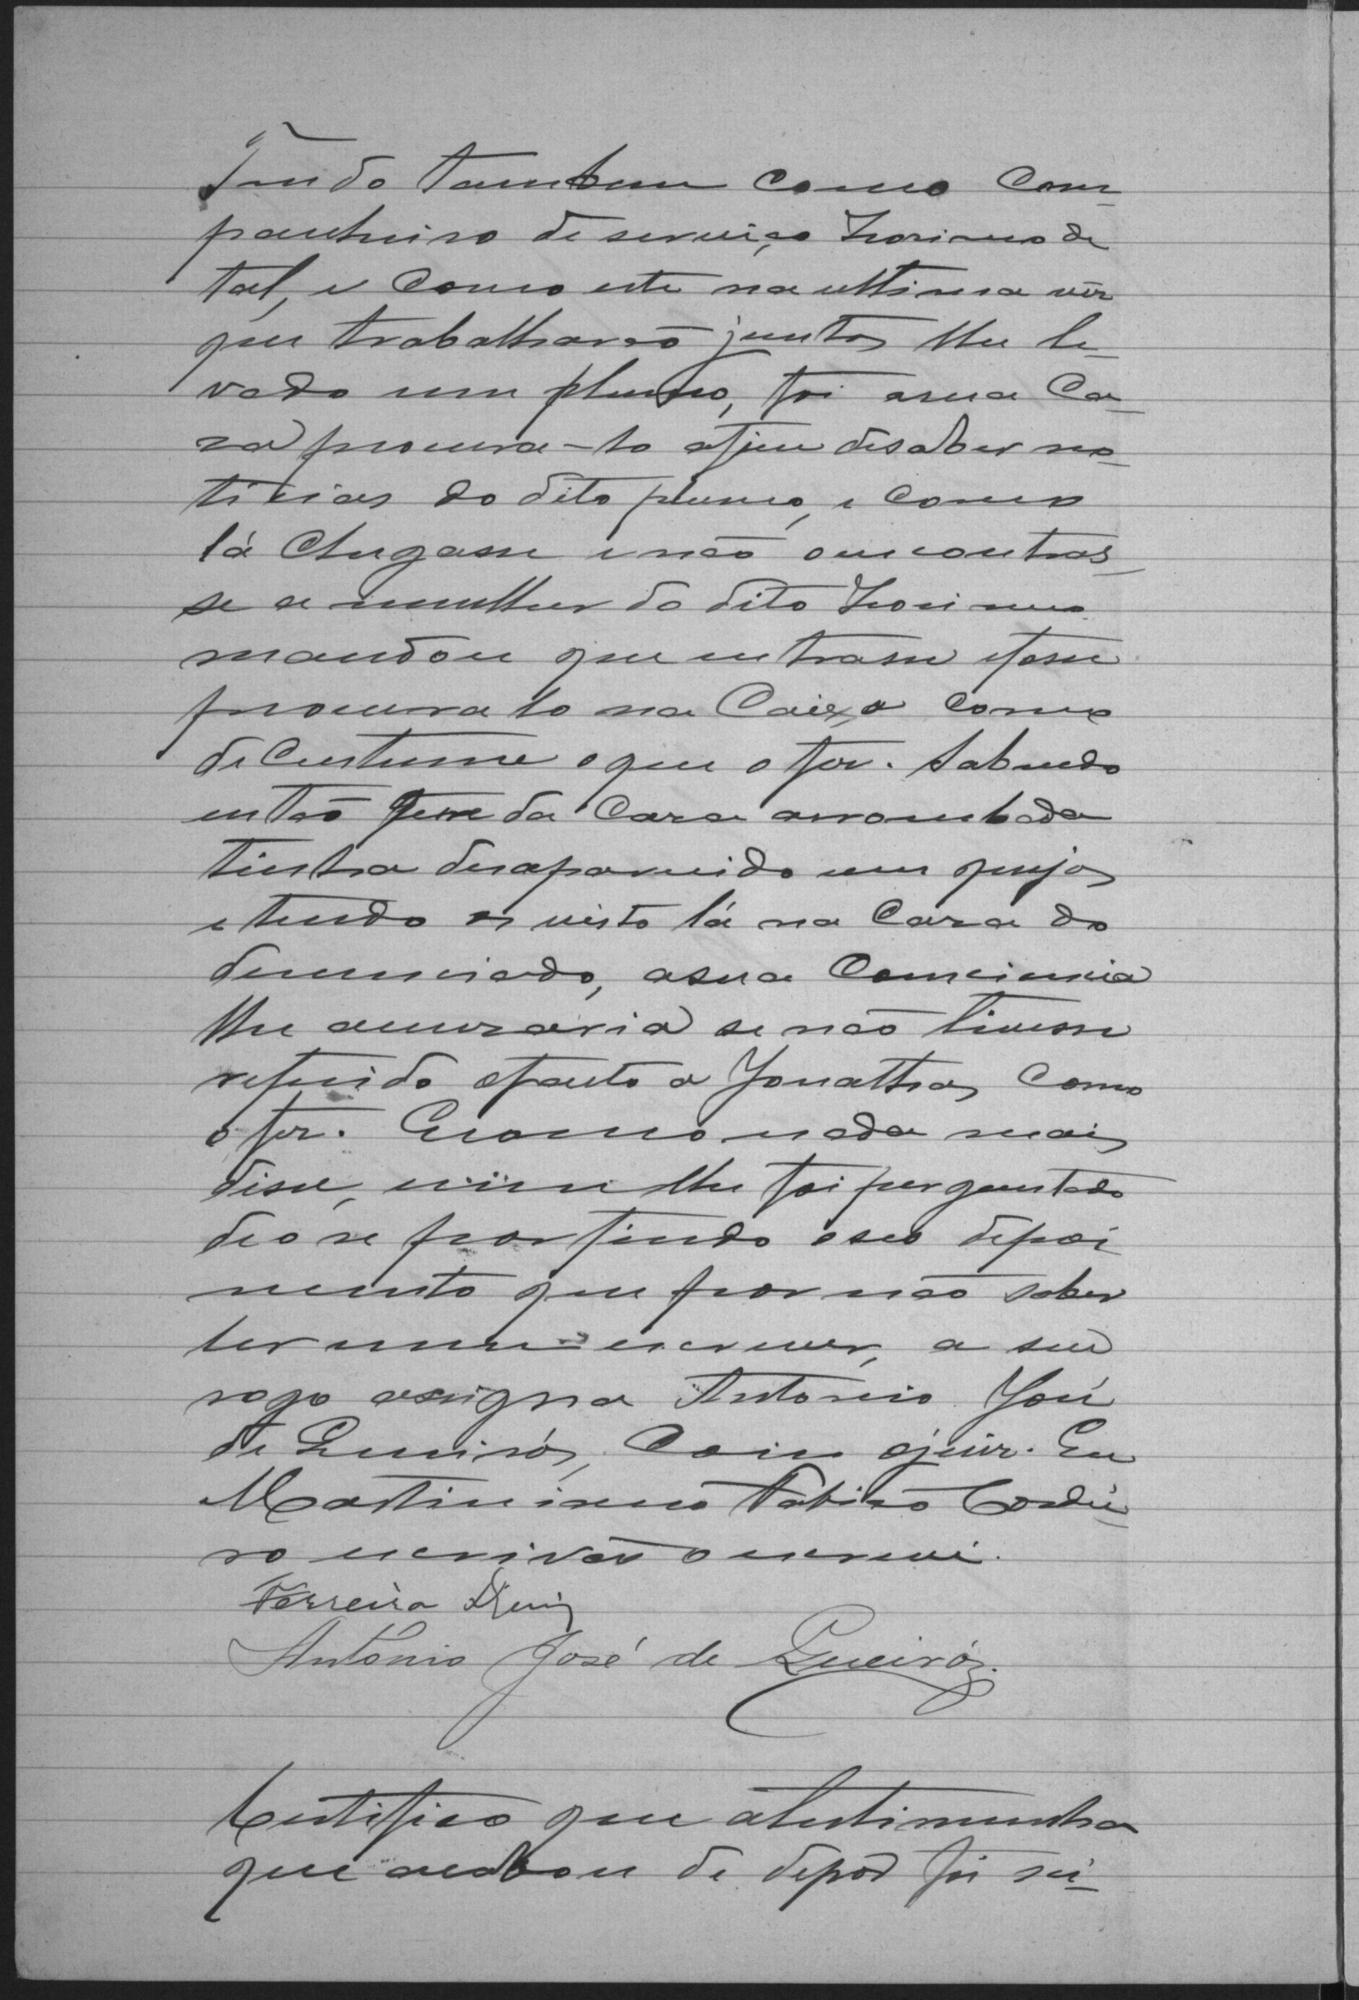 Tendo tambem como com-
panheiro de serviço Zozimo de
tal, e como este na ultima vez
que trabalharão juntos lhe le-
vado um plumo, foi a sua Ca-
za procura-lo afim de saber no-
ticias do dito plumo, e como
lá chegasse e não o encontras-
se a mulher do dito Zozimo
mandou que entrasse e fosse
procura lo na Caixa como
de custume o que o fez. Sabendo
então que da Caza arrombada
tinha desaparecido um queijos
e tendo os visto lá na Caza do
denunciado, a sua Conciencia
lhe acuzaria se não tivesse
referido o facto a Jonathas como
o fez. E como nada mais
disse, nem lhe foi perguntado
deo se por findo o seo depoi
mento que por não saber
ler nem escrever, a seu
rogo assigna Antonio José
de Queirós, Com o juiz. Eu
Martiniano Fabião Cordei-
ro escrivão o escrevi.
Ferreira Diniz
Antonio José de Queiróz.
Certifico que a testimunha
que acabou de depor foi sci-